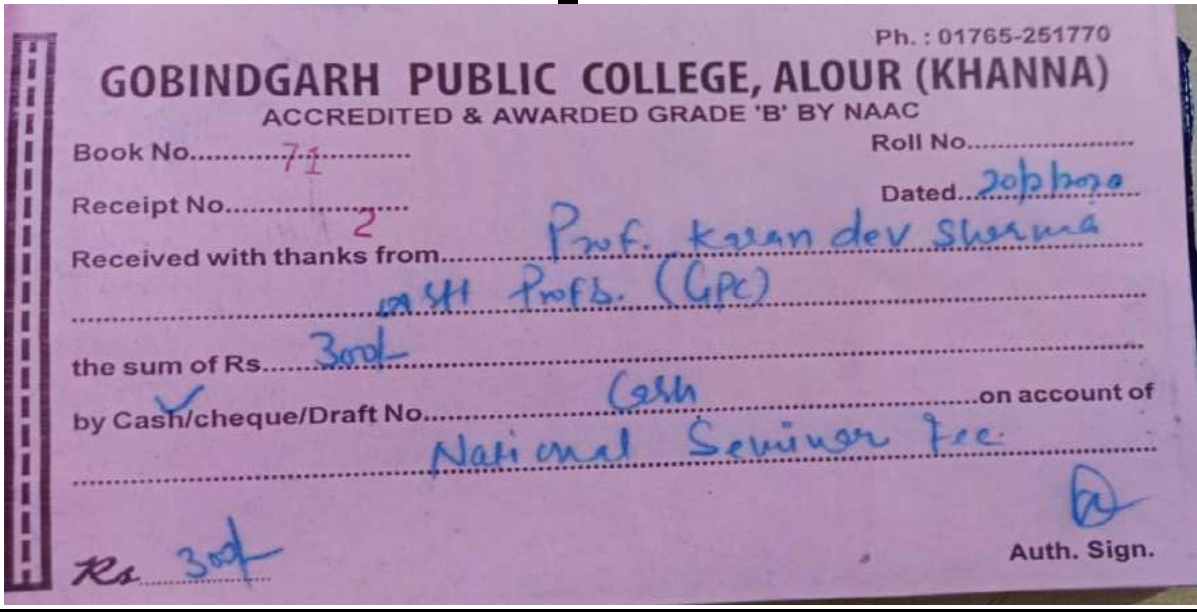 Ph. : 01765-251770
GOBINDGARH PUBLIC COLLEGE, ALOUR (KHANNA)
ACCREDITED & AWARDED GRADE 'B' BY NAAC
Book No. 71 Roll No.
Receipt No. 2 Dated 20/2/2020
Received with thanks from Prof. Karan dev Sharma
Profs. (GPC)
the sum of Rs. 300/-
by Cash/cheque/Draft No. Cash on account of
National Seminar Fee
Rs 300/- Auth. Sign.